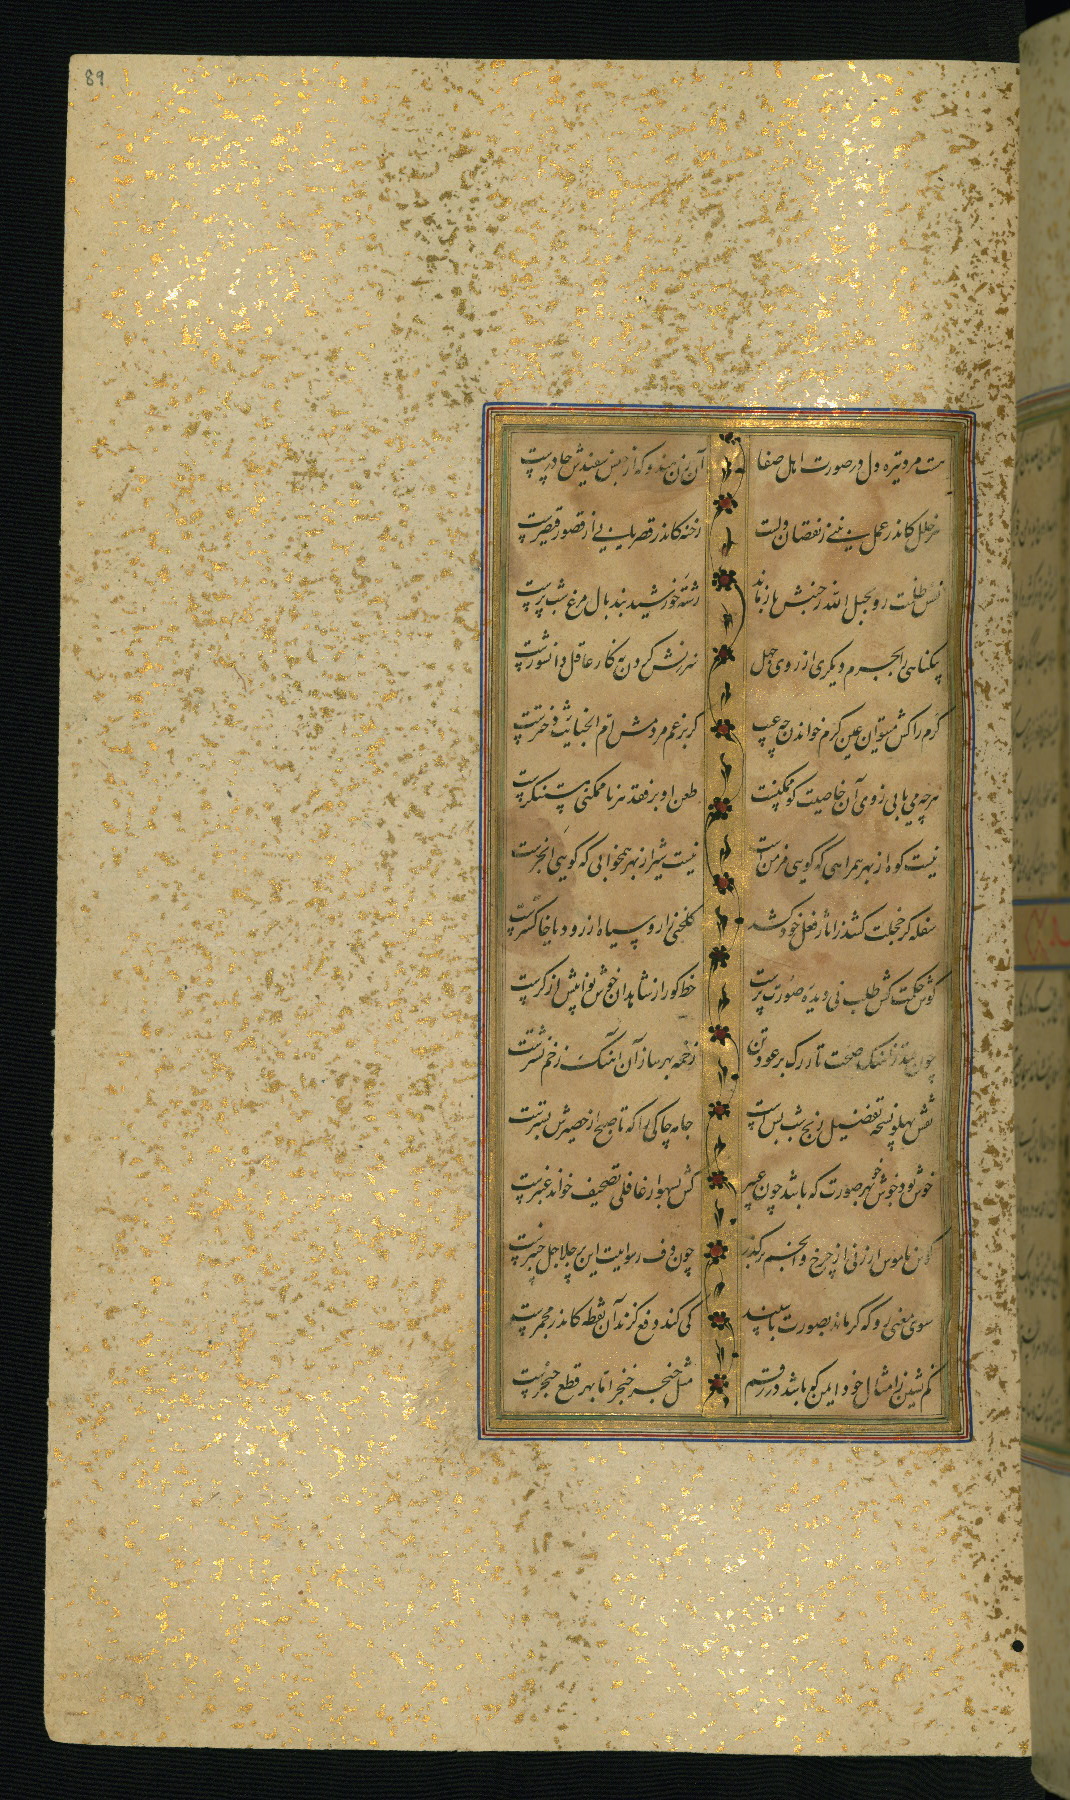 89
هست مرد تیره دل در صورت اهل صفا
آن زن هندو که از جنس سفیدش چادرست
هر خلل کاندر عمل بینی ز نقصان دلست
رخنه کاندر قصر یابی از قصور قیصرست
نفس ظلمت رو بحبل الله ز جنبش باز ماند
رشته خورشید بند بال مرغ شب پرست
بیکناهی را بجرم دیکری از روی جهل
سرزنش کردن نه کار عاقل دانشورست
کرم را کش میتوان عین کرم خواندن چو عیب
کر بزعم مردمش ام الخبائث دخترست
هر چه می یابی ز وی آن خاصیت کو ممکنست
طعن او بر فقد هر ناممکنی مستنکرست
نیست کوه از بهر همراهی که کویی فرمن است
نیست شیر از بهر همخوابی که کویی انجرست
سفله کر خجلت کشد ز آثار فعل خود کشد
کلخنی را رو سیاه از دود یا خاکسترست
کوش حکمت کش طلب نی دیده صورت پرست
خط کور از شاهدان خوش نوا بیش از کرست
چون فتد ز آهنک صحت تار رک بر عود تن
زخمه بهر ساز آن آهنک زخم نشترست
نقش پهلو نسخه تفضیل رنج شب بس است
جامه چاکی را که تا صبح از حصیرش بسترست
خوش بود خوشخو بهر صورت که باشد چون عبیر
کش بسهو ار غافلی تصحیف خواند عنبرست
کوس ناموس ار زنی از چرخ و انجم بر کذر
چون دف رسواییست این پر جلاجل چنبرست
سوی معنی رو که کر ماند بصورت با سپند
کی کند دفع کزند آن نقطه کاندر مجمرست
کم نشین ز امثال خود ایمن که باشد در رقم
مثل خنجر خنجر اما بهر قطع حنجرست